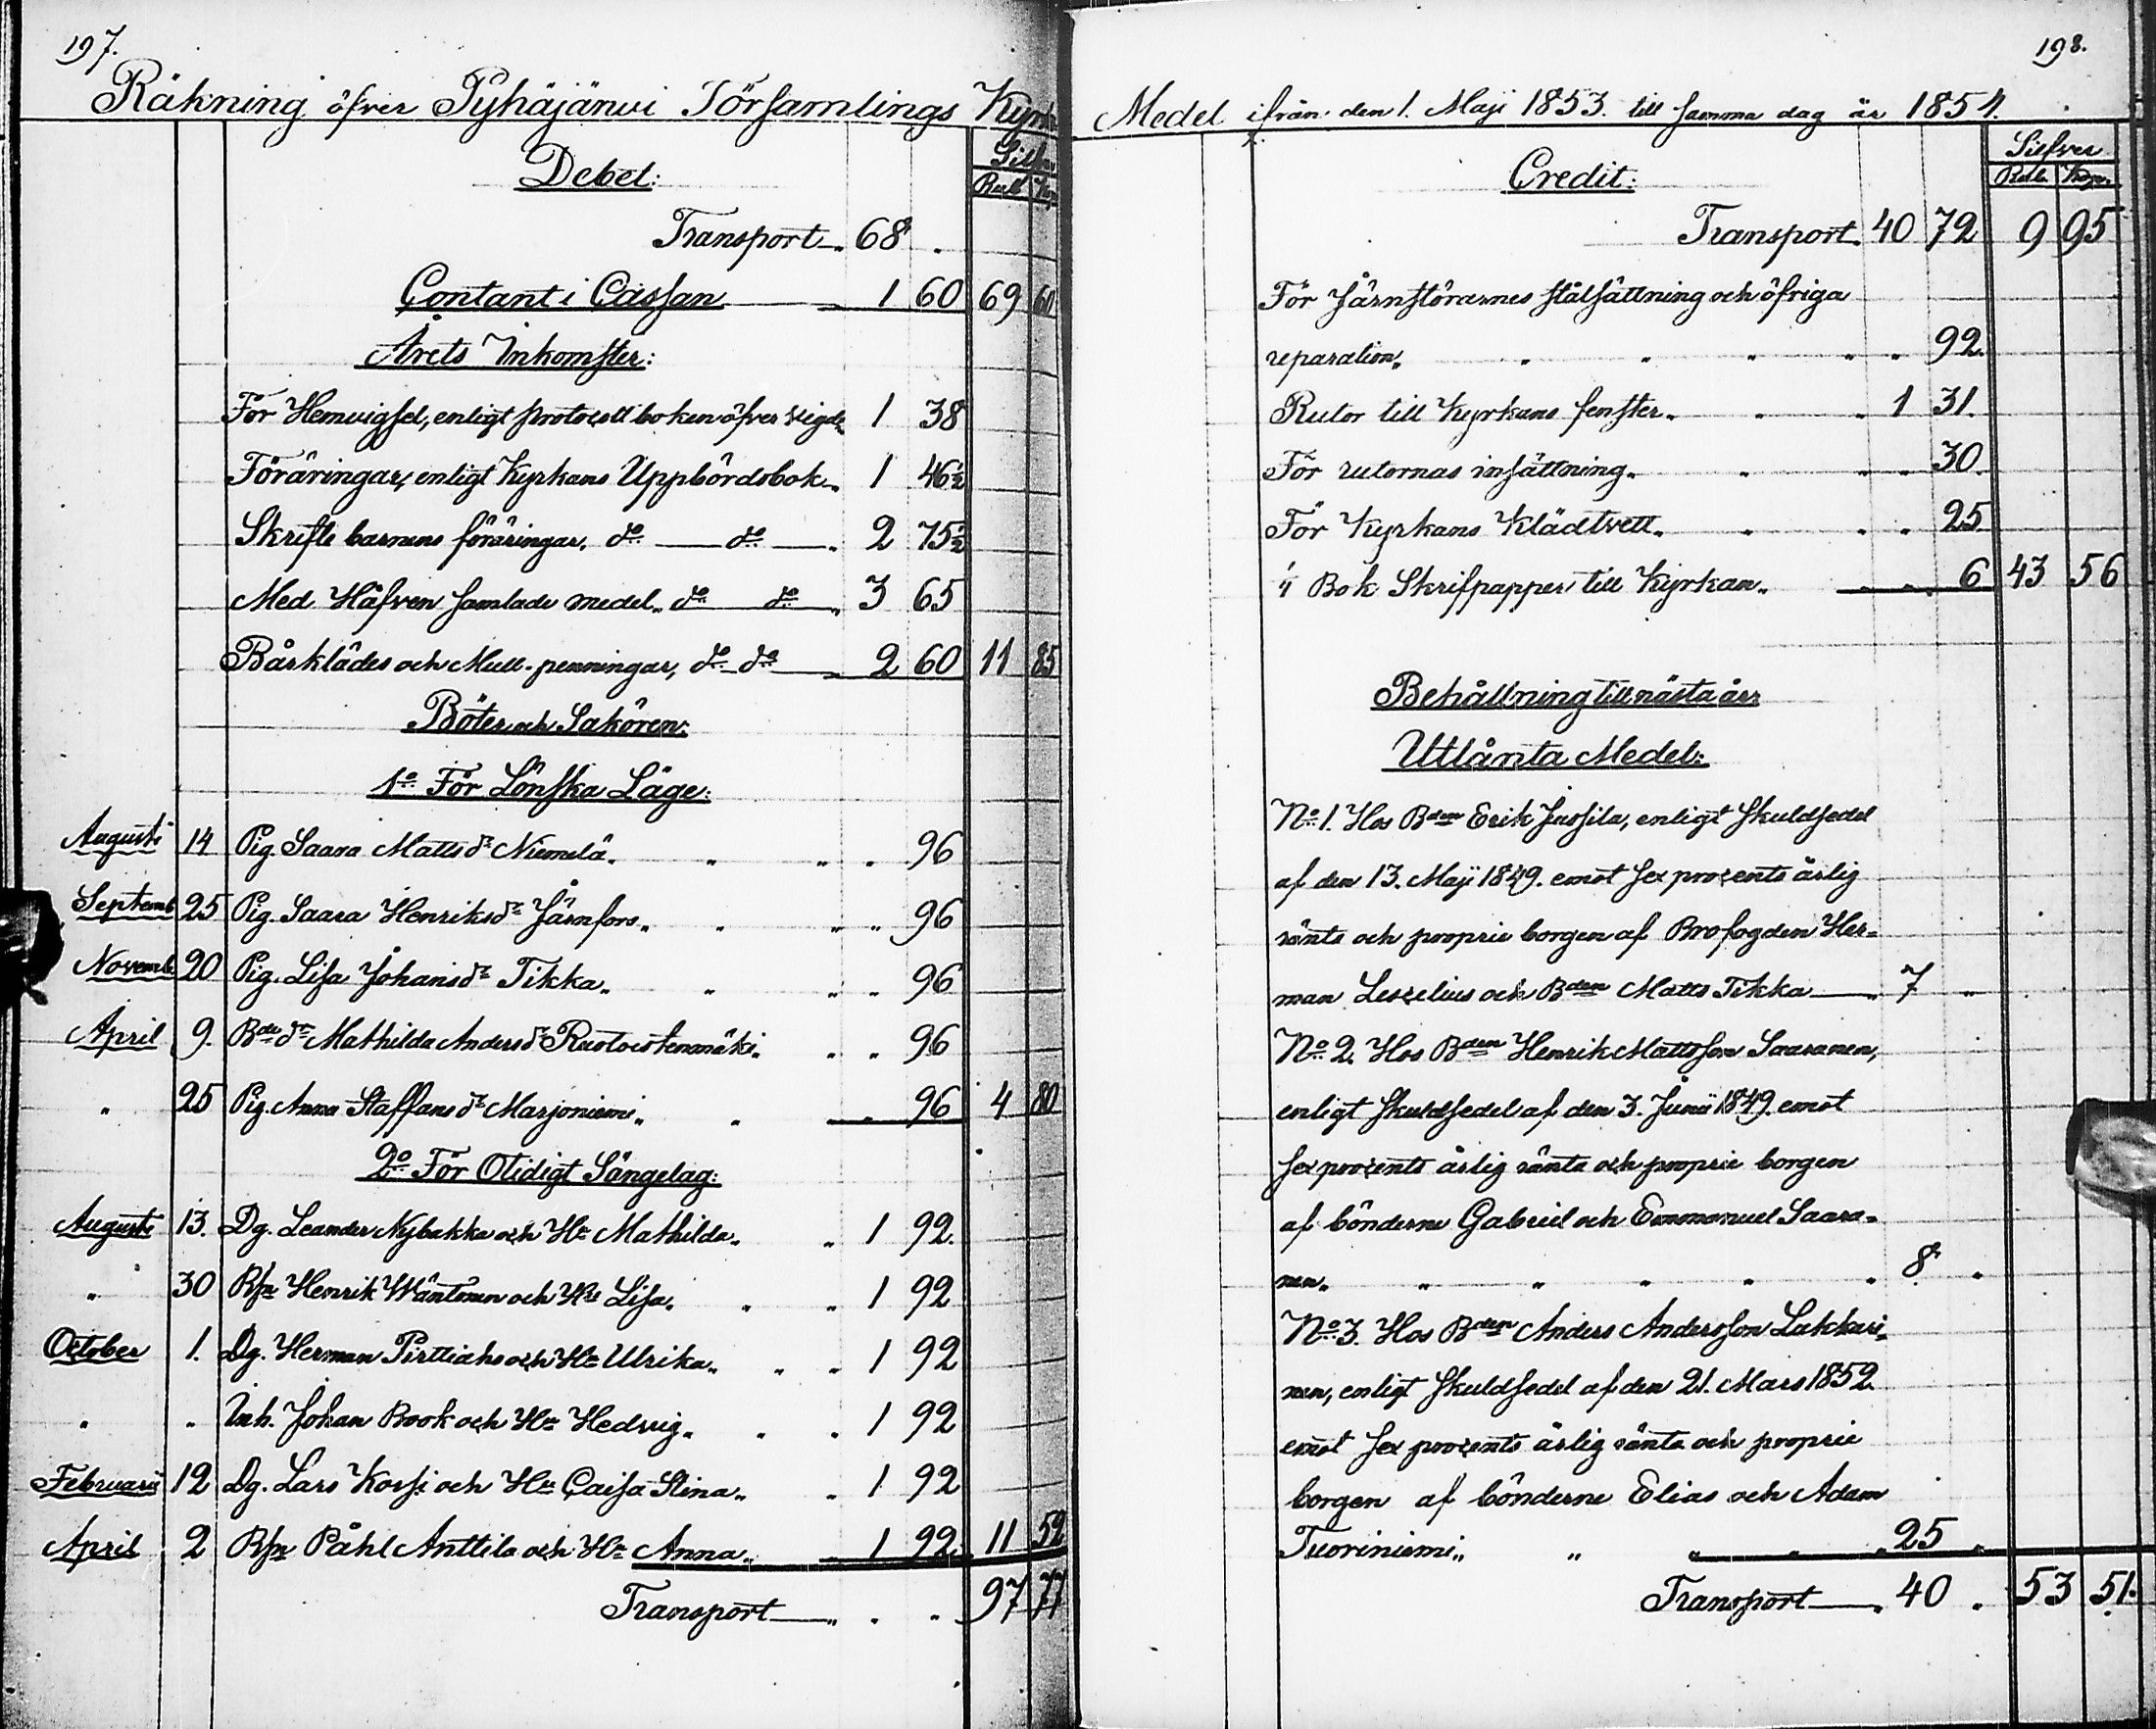 197.
Räkning öfver Pyhäjärvi Församlings Kyrk
Silfver
Rub Kop
Debet:
Transport 68 "
Contant i Cassan 1 60 69 60
Årets Inkomster:
För Hemvigsel, enligt protocoll boken öfver vigde 1 38
Föräringar, enligt Kyrkans Uppbördsbok 1 46½
Skrifte barnens föräringar. do do 2 75½
Med Håfven samlade medel do do 3 65
Bårklädes och Mull-penningar, do do 2 60 11 85
Böter och Sakören:
1o För Lönska Läge:
Augusti 14 Pig. Saara Mattsdr Niemelä " " " 96
Septemb 25 Pig. Saara Henriksdr Järnfors " " " 96
Novemb 20 Pig. Lisa Johansdr Tikka " " " 96
April 9. Bde dr Mathilda Andersdr Ruotoistenmäki " " 96
" 25 Pig. Anna Staffansdr Marjoniemi " " 96 4 80
2o För Otidigt Sängelag:
Augusti 13. Dg. Leander Nybakka och Hu Mathilda " 1 92.
" 30 Bsn Henrik Wäntönen och Hu Lisa " " 1 92
October 1. Dg. Herman Pirttiaho och Hu Ulrika " " 1 92
" " Inh. Johan Book och Hu Hedvig " " 1 92
Februarii 12 Dg. Lars Korsi och Hu Caisa Stina " 1 92
April 2 Bsn Påhl Anttila och Hu Anna 1 92 11 52
Transport " " 97 77
198.
Medel ifrån den 1. Maji 1853. till samma dag år 1854.
Silfver
Rub. Kop.
Credit:
Transport 40 72 9 95
För Järnstörarnes stålsättning och öfriga
reparation " " " " " 92.
Rutor till Kyrkans fenster " " 1 31.
För rutornas insättning " " " 30.
För Kyrkans Klädtvett " " " 25.
¼ Bok Skrifpapper till Kyrkan " " 6 43 56
Behållning till nästa år:
Utlånta Medel:
No 1. Hos Bden Erik Jussila, enligt skuldsedel
af den 13. Maji 1849. emot sex procents årlig
ränta och proprie borgen af Brofogden Her=
man Lescelius och Bden Matts Tikka 7 "
No 2. Hos Bden Henrik Mattsson Saaranen,
enligt skuldsedel af den 3. Junii 1849. emot
sex procents årlig ränta och proprie borgen
af bönderne Gabriel och Emmanuel Saara=
nen " " " " " 8 "
No 3. Hos Bden Anders Andersson Lukkari=
nen, enligt skuldsedel af den 21. Mars 1852.
emot sex procents årlig ränta och proprie
borgen af bönderne Elias och Adam
Tuoriniemi " " " " 25 "
Transport 40 " 53 51.